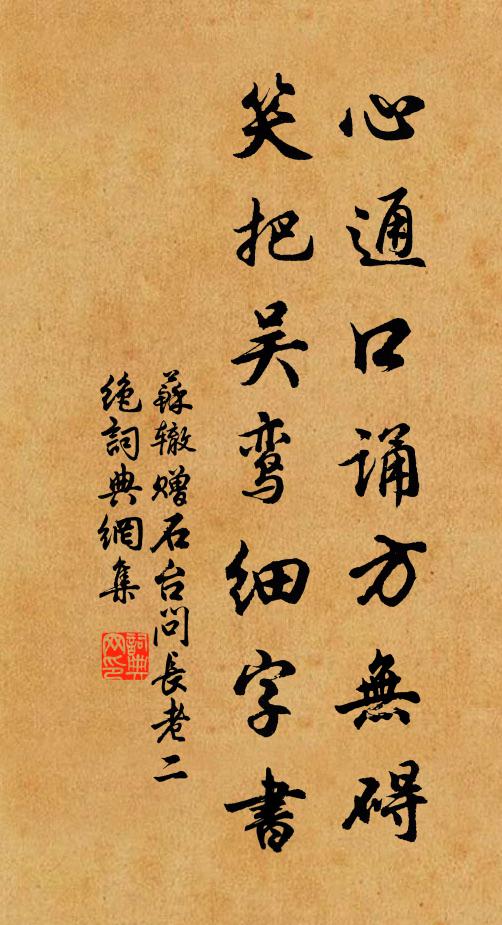 心通口诵方無碍
笑把吴鸾细字書
蘇辙赠石台问長老二
绝詞典網集
詞典网印